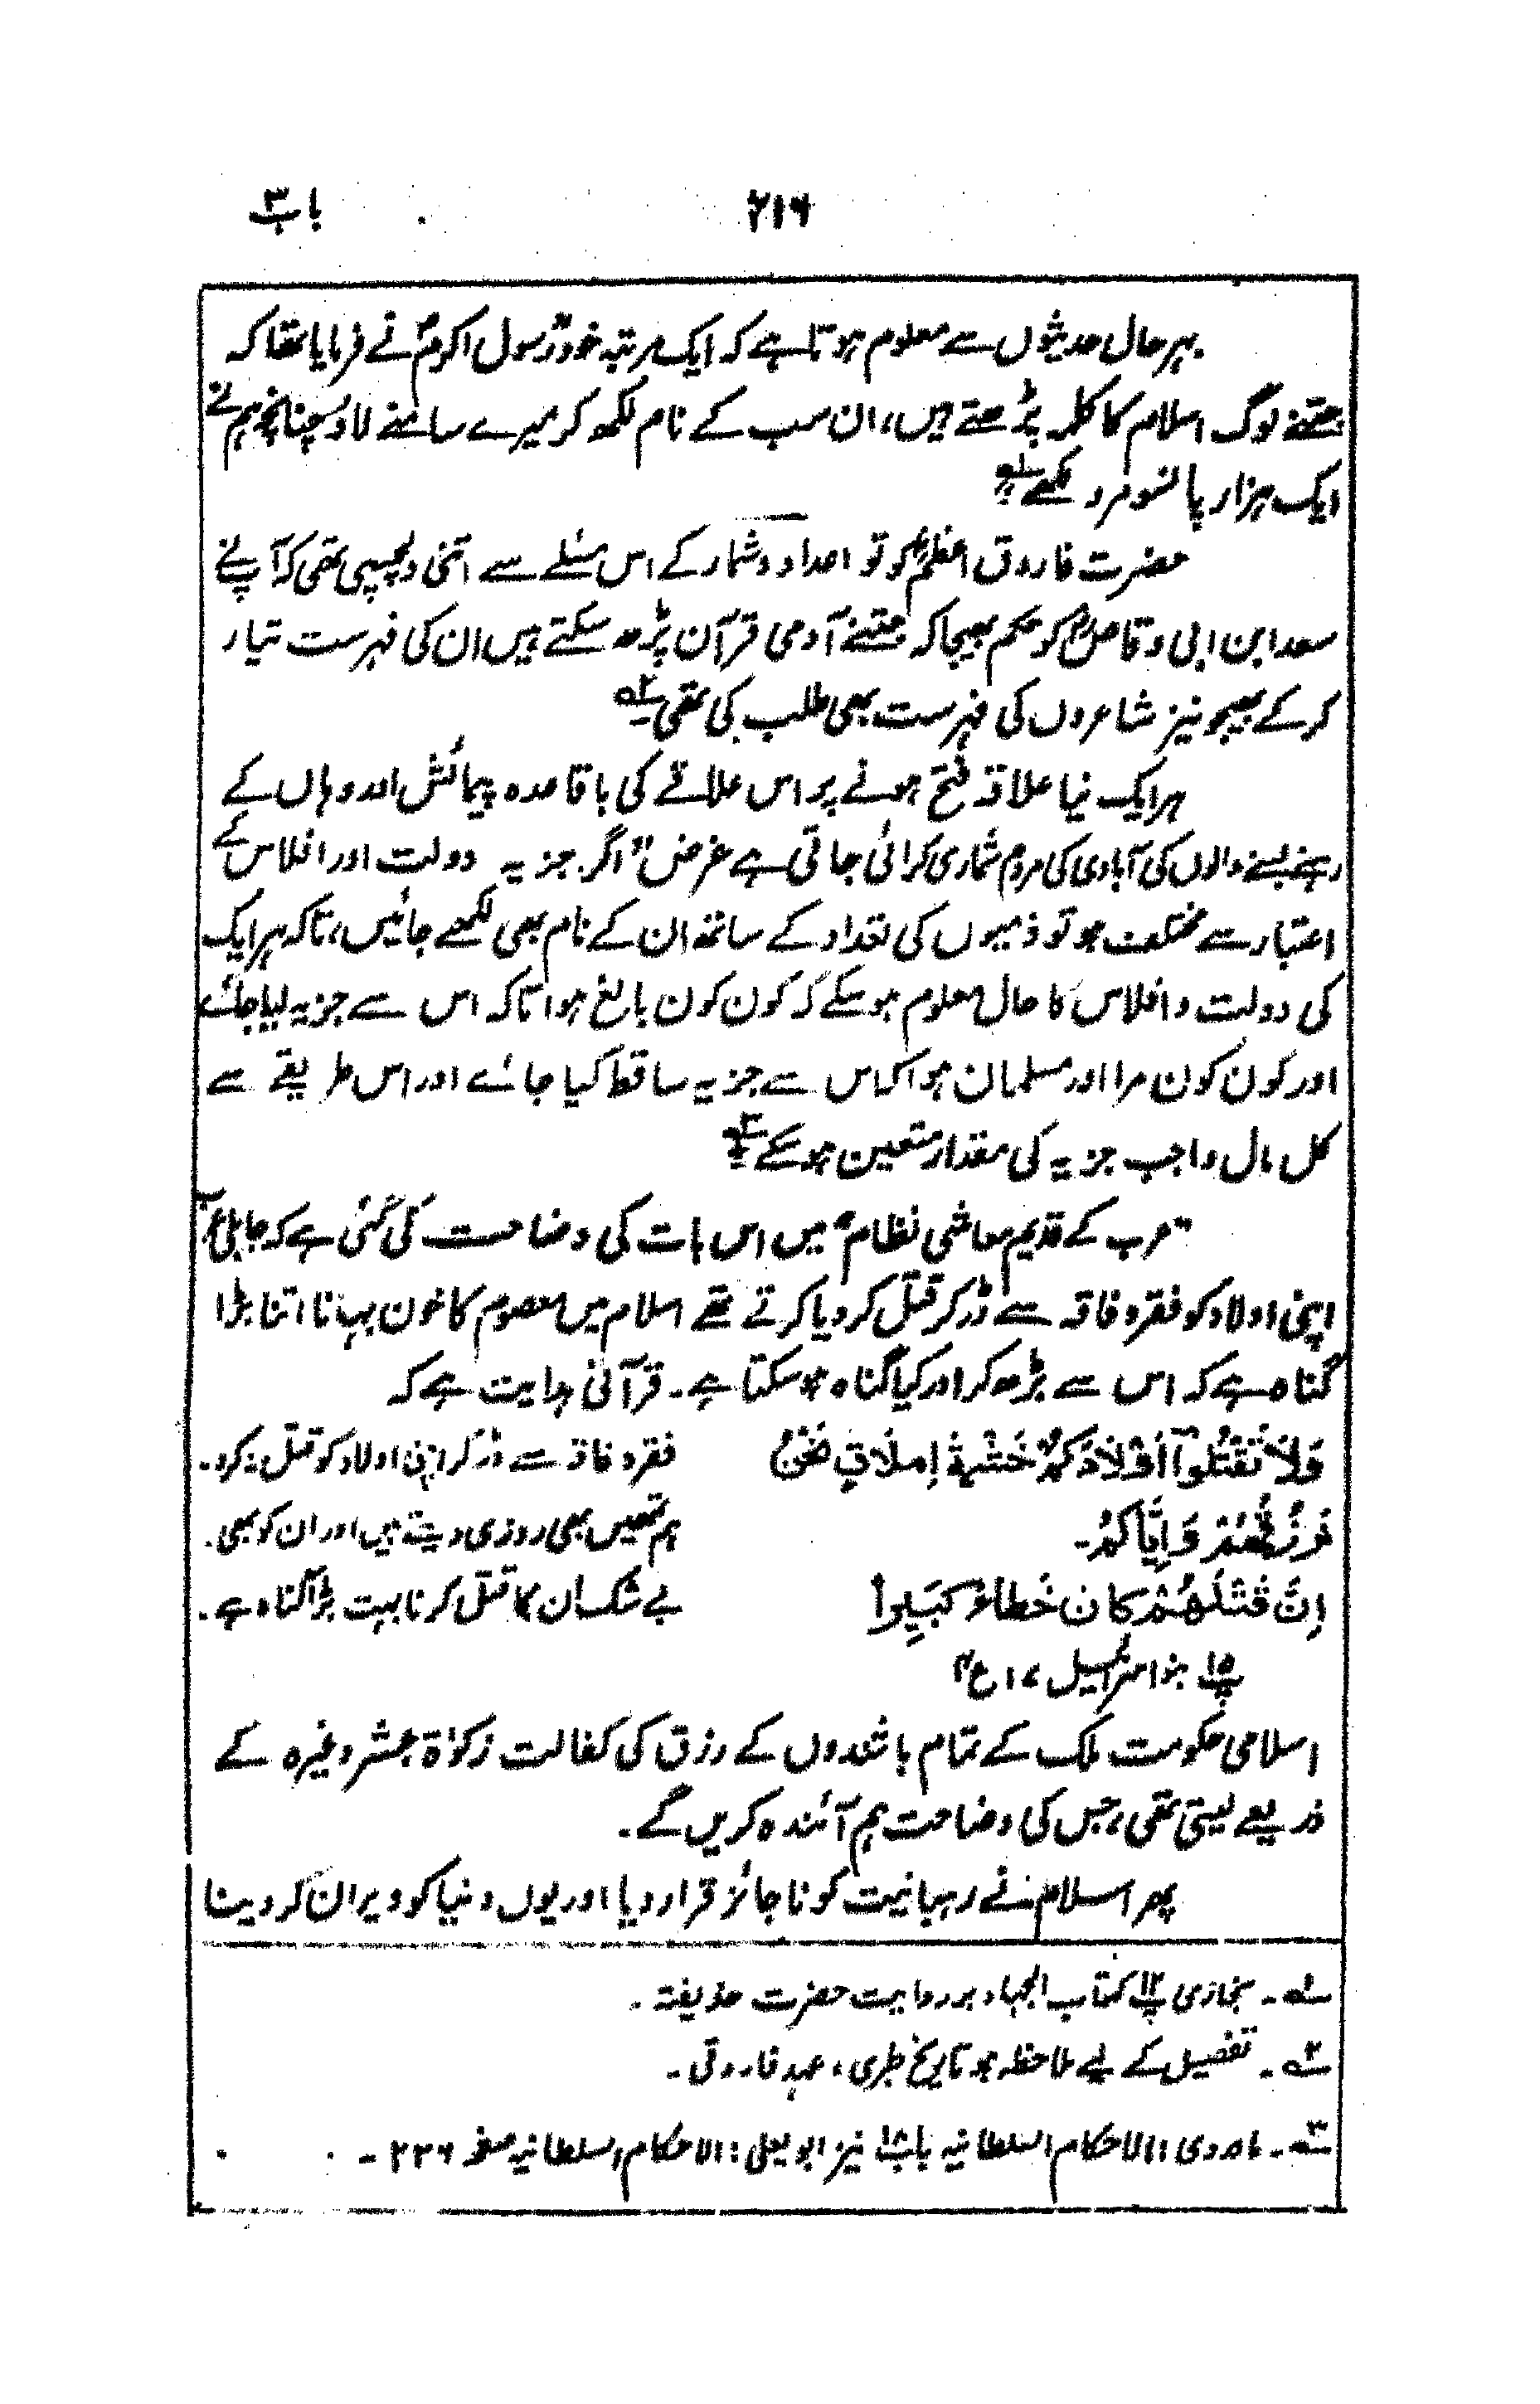 ۲۱۶ باب۳
بہرحال حدیثوں سے معلوم ہوتا ہے کہ ایک مرتبہ خود رسول اکرمؐ نے فرمایا تھا کہ
جتنے لوگ اسلام کا کلمہ پڑھتے ہیں، ان سب کے نام لکھ کر میرے سامنے لاؤ چنانچہ ہم نے
ایک ہزار پانسو مرد لکھے۔۱؎
حضرت فاروق اعظمؓ کو تو اعداد و شمار کے اس مسئلے سے اتنی دلچسپی تھی کہ آپ نے
سعد ابن ابی وقاصؓ کو حکم بھیجا کہ جتنے آدمی قرآن پڑھ سکتے ہیں ان کی فہرست تیار
کر کے بھیجو نیز شاعروں کی فہرست بھی طلب کی تھی۔۲؎
ہر ایک نیا علاقہ فتح ہونے پر اس علاقے کی باقاعدہ پیمائش اور وہاں کے
رہنے بسنے والوں کی آبادی کی مردم شماری کرائی جاتی ہے غرض "اگر جزیہ دولت اور افلاس کے
اعتبار سے مختلف ہو تو ذمیوں کی تعداد کے ساتھ ان کے نام بھی لکھے جائیں، تاکہ ہر ایک
کی دولت و افلاس کا حال معلوم ہو سکے کہ کون کون بالغ ہوا تاکہ اس سے جزیہ لیا جائے
اور کون کون مرا اور مسلمان ہوا کہ اس سے جزیہ ساقط کیا جائے اور اس طریقے سے
کل مال واجب جزیہ کی مقدار متعین ہو سکے۔۳؎
"عرب کے قدیم معاشی نظام" میں اس بات کی وضاحت کی گئی ہے کہ جاہلی عرب
اپنی اولاد کو فقر و فاقہ سے ڈر کر قتل کر دیا کرتے تھے اسلام میں معصوم کا خون بہانا اتنا بڑا
گناہ ہے کہ اس سے بڑھ کر اور کیا گناہ ہو سکتا ہے۔ قرآنی ہدایت ہے کہ
وَلَا تَقْتُلُوْٓا اَوْلَادَكُمْ خَشْيَةَ اِمْلَاقٍ نَحْنُ فقر و فاقہ سے ڈر کر اپنی اولاد کو قتل نہ کرو۔
نَرْزُقُهُمْ وَاِيَّاكُمْ۔ ہم تمھیں بھی روزی دیتے ہیں اور ان کو بھی۔
اِنَّ قَتْلَهُمْ كَانَ خَطَاءً كَبِيْرًا بے شک ان کا قتل کرنا بہت بڑا گناہ ہے۔
پ۱۵ بنو اسرائیل ۱۷ ع۴
اسلامی حکومت ملک کے تمام باشندوں کے رزق کی کفالت زکوٰۃ عشر وغیرہ کے
ذریعے لیتی تھی، جس کی وضاحت ہم آئندہ کریں گے۔
پھر اسلام نے رہبانیت کو ناجائز قرار دیا اور یوں دنیا کو ویران کر دینا
۱؎۔ بخاری پ۱۲ کتاب الجہاد بروایت حضرت حذیفہ۔
۲؎۔ تفصیل کے لیے ملاحظہ ہو تاریخ طبری، عہد فاروقی۔
۳؎۔ ماوردی: الاحکام السلطانیہ باب۱۸ نیز ابو یعلی: الاحکام السلطانیہ صفحہ ۲۳۶۔